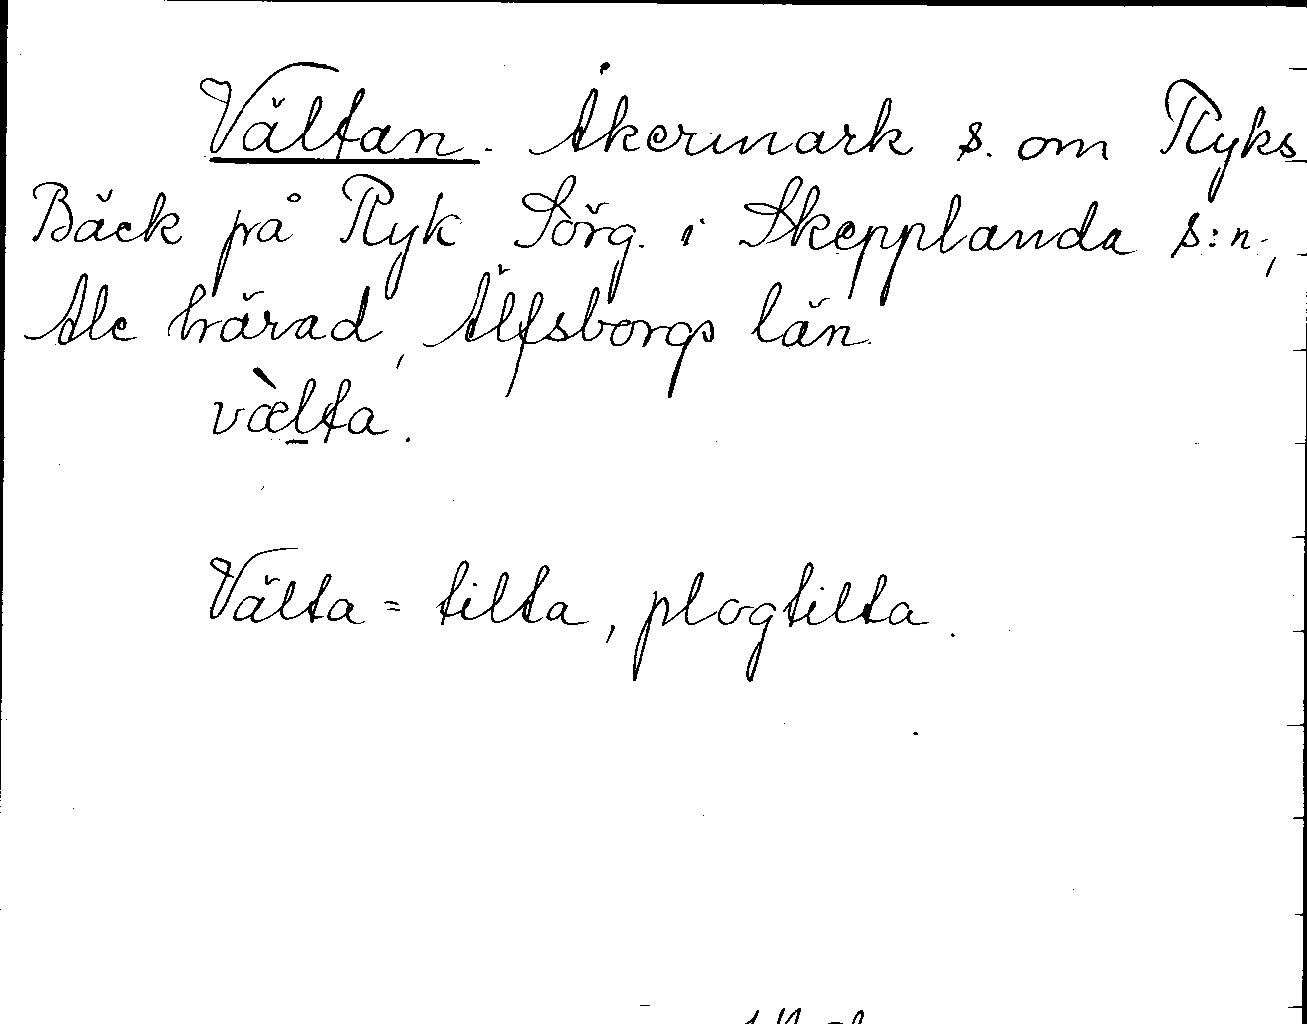 Vältan. Åkermark s. om Ryks
Bäck på Ryk Sörg. i Skepplanda s:n,
Ale härad, Älfsborgs län.
væ̀l̠ta.
Välta = tilta, plogtilta.